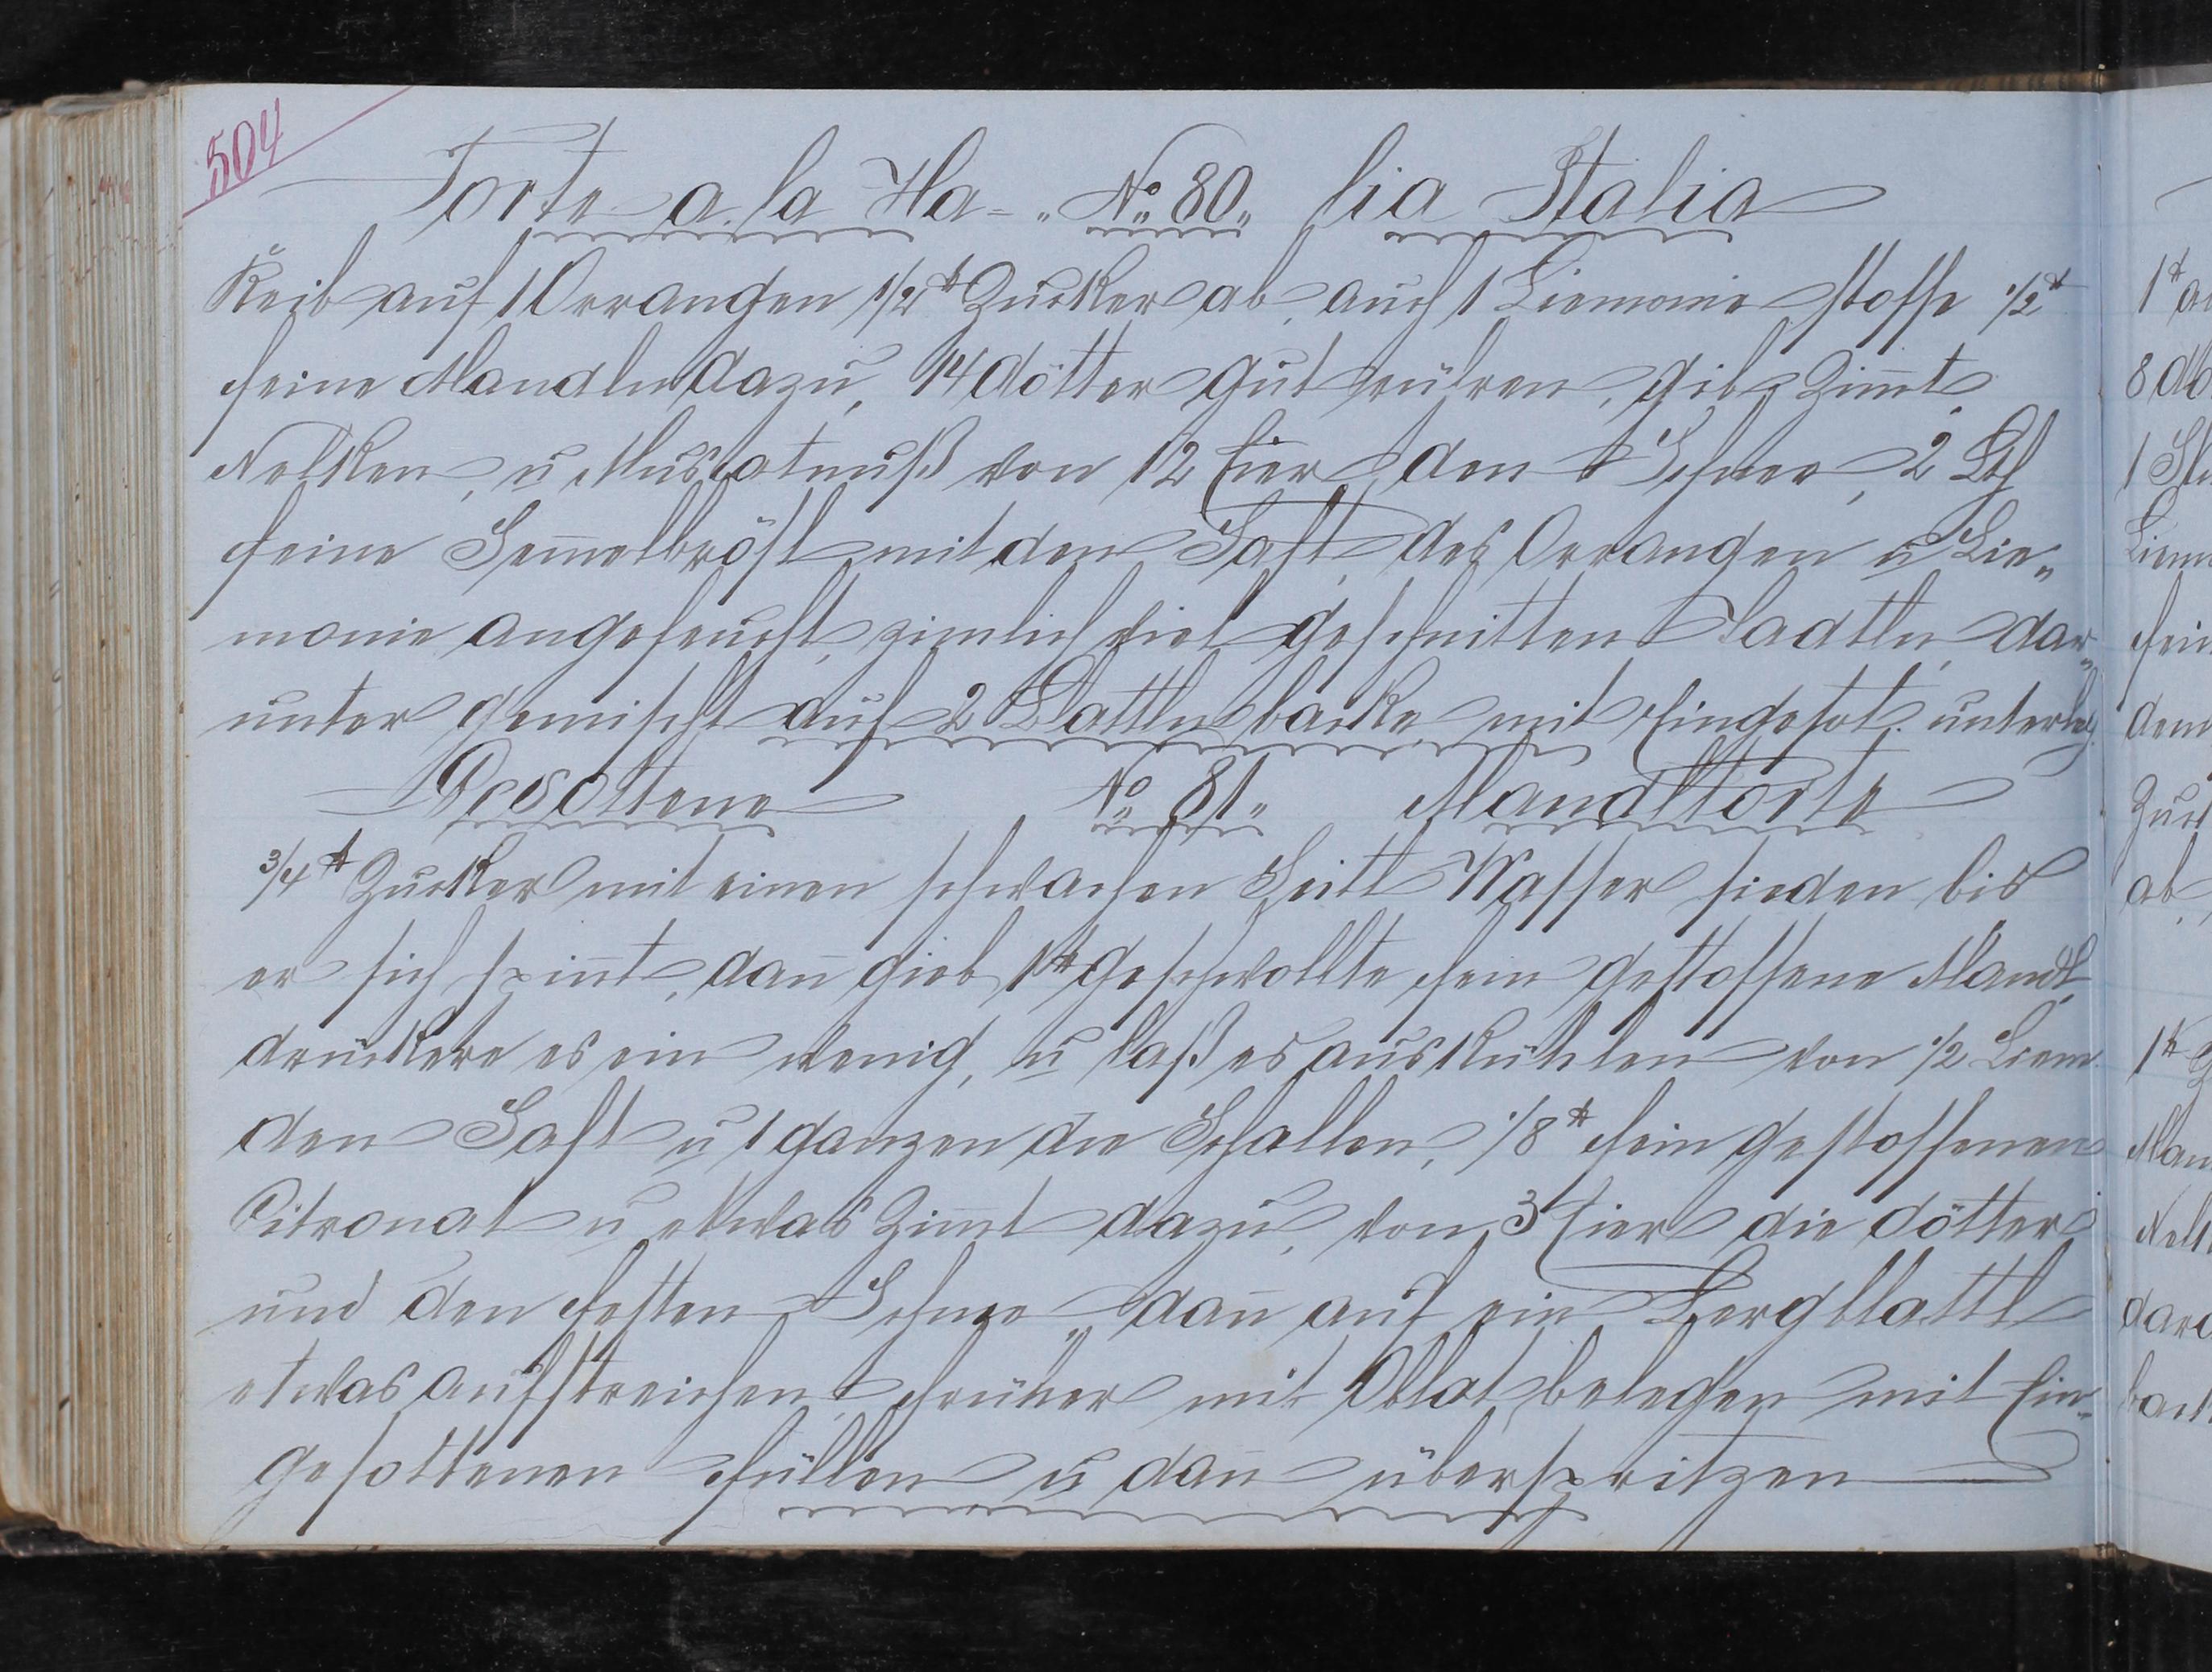 504
Torte a. la Ha= „No. 80„ lia Italia
Reib auf 1 Orrangen 1/2 ℔ Zucker ab, auch 1 Liemonie stosse 1/2 ℔
feine Mandln dazu, 14 dötter gut rühren, gib Zim̅t
Nelken, u Muscatnuß von 12 Eier den Schnee, 2 Lth
feine Sem̅elbrösl mit den Saft des Orrangen u Lie„
monie angefeucht, zimlich viel geschnitten dar„
unter gemischt auf 2 Blattln backe mit Eingesot. unterleg.
Gesottene No. 81„ Mandltorte
3/4 ℔ Zucker mit einen schwachen Seitl Wasser sieden bis
er sich spin̅t, dan̅ gieb 1 ℔ geschwollte fein gestossene Mandl,
drückere es ein wenig, u laß es auskühlen von 1/2 Liem.
den Saft u 1 ganzen die Schallen, 1/8 ℔ fein gestossenen
Citronat u etwas Zim̅t dazu, von 3 Eier die dötter
und den festen Schnee„ dan̅ auf ein Bergblattl
etwas aufstreichen früher mit Oblat belegen mit Ein„
gesottenen füllen u dan̅ überspritzen
1 ℔
8
1
Liem
fein
dem
Zuck
ab
1 ℔
Man
Nelk
daru
back